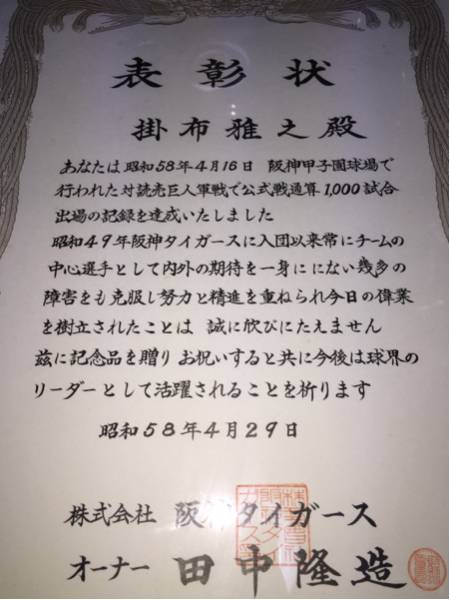 表彰状
掛布雅之殿
あなたは昭和58年4月16日 阪神甲子園球場で
行われた対読売巨人軍戦で公式戦通算1,000試合
出場の記録を達成いたしました
昭和49年阪神タイガースに入団以来常にチームの
中心選手として内外の期待を一身ににない幾多の
障害をも克服し努力と精進を重ねられ今日の偉業
を樹立されたことは 誠に欣びにたえません
茲に記念品を贈りお祝いすると共に今後は球界の
リーダーとして活躍されることを祈ります
昭和58年4月29日
株式会社 阪神タイガース
オーナー 田中隆造